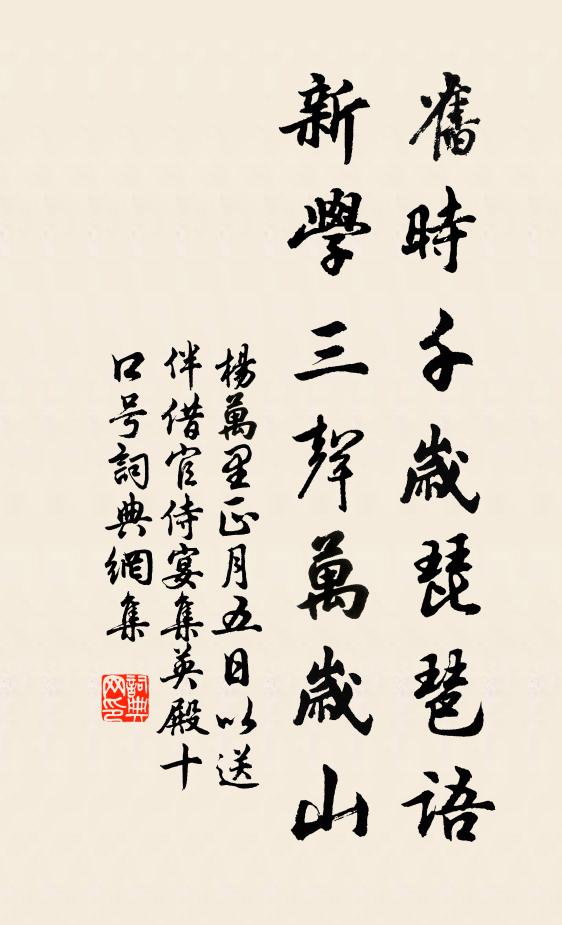 舊時千歲琵琶語
新學三聲萬歲山
楊萬里正月五日以送
伴借官侍宴集英殿十
口号詞典網集
詞典
网印